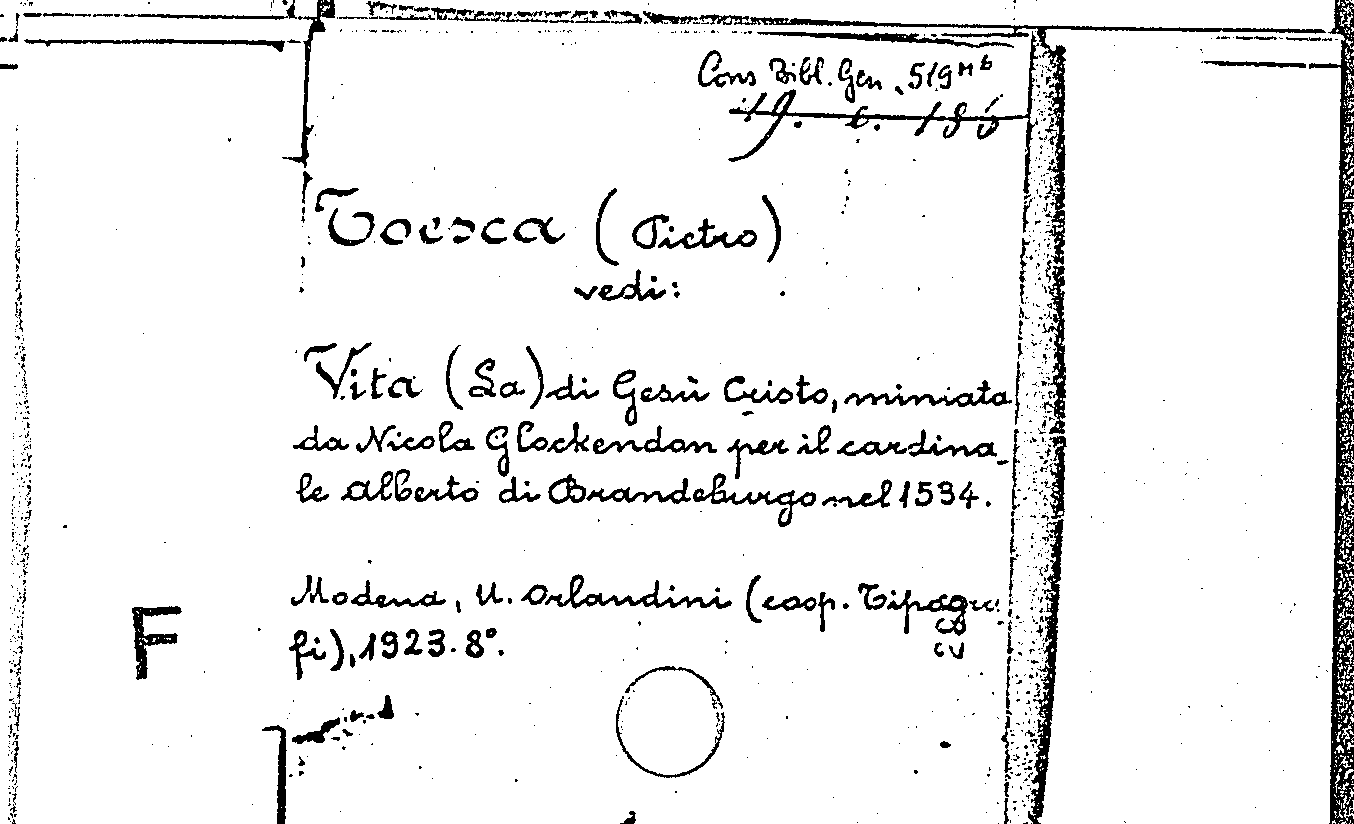 Cons Bibl. Gen. 519 M b
19. C. 186
Toesca (Pietro)
vedi:
Vita (La) di Gesù Cristo, miniata
da Nicola Glockendon per il cardina-
le Alberto di Brandeburgo nel 1534.
Modena, U. Orlandini (coop. Tipogra-
fi), 1923. 8°.
F